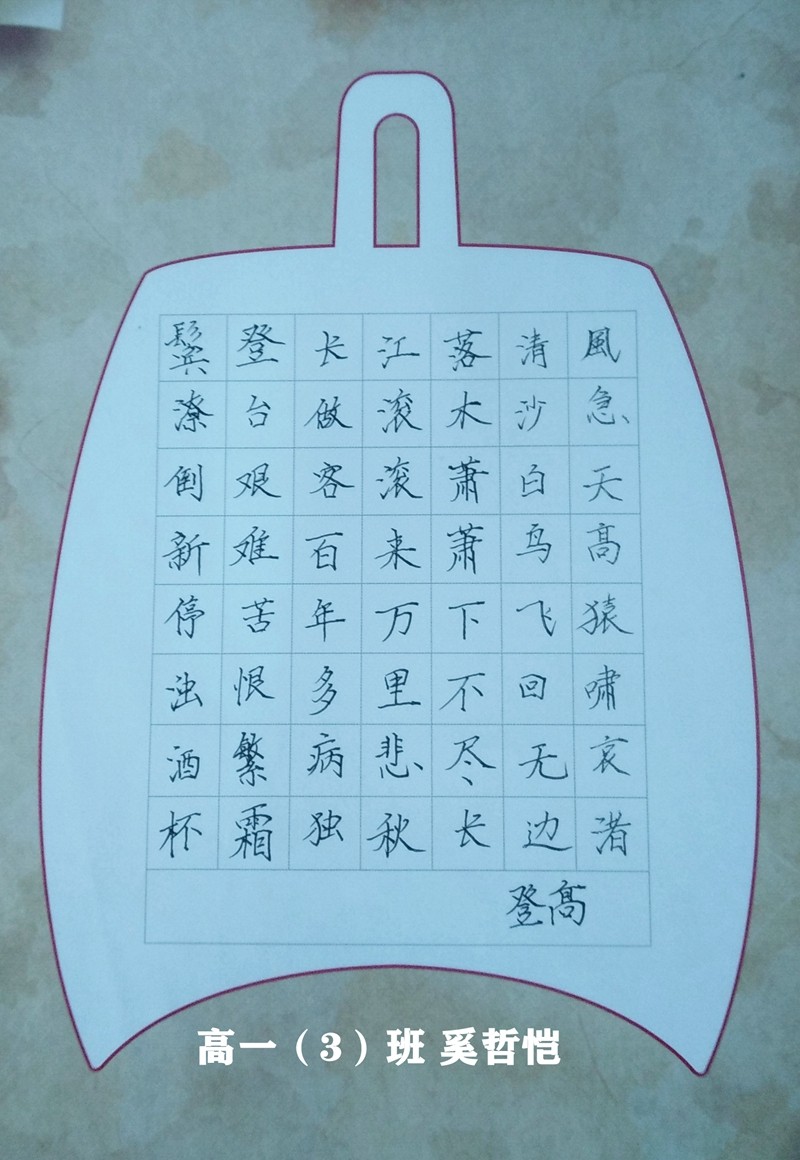 風急天高猿啸哀渚
清沙白鸟飞回无边
落木萧萧下不尽长
江滚滚来万里悲秋
长做客百年多病独
登台艰难苦恨繁霜
鬓潦倒新停浊酒杯
登高
高一（3）班 奚哲恺